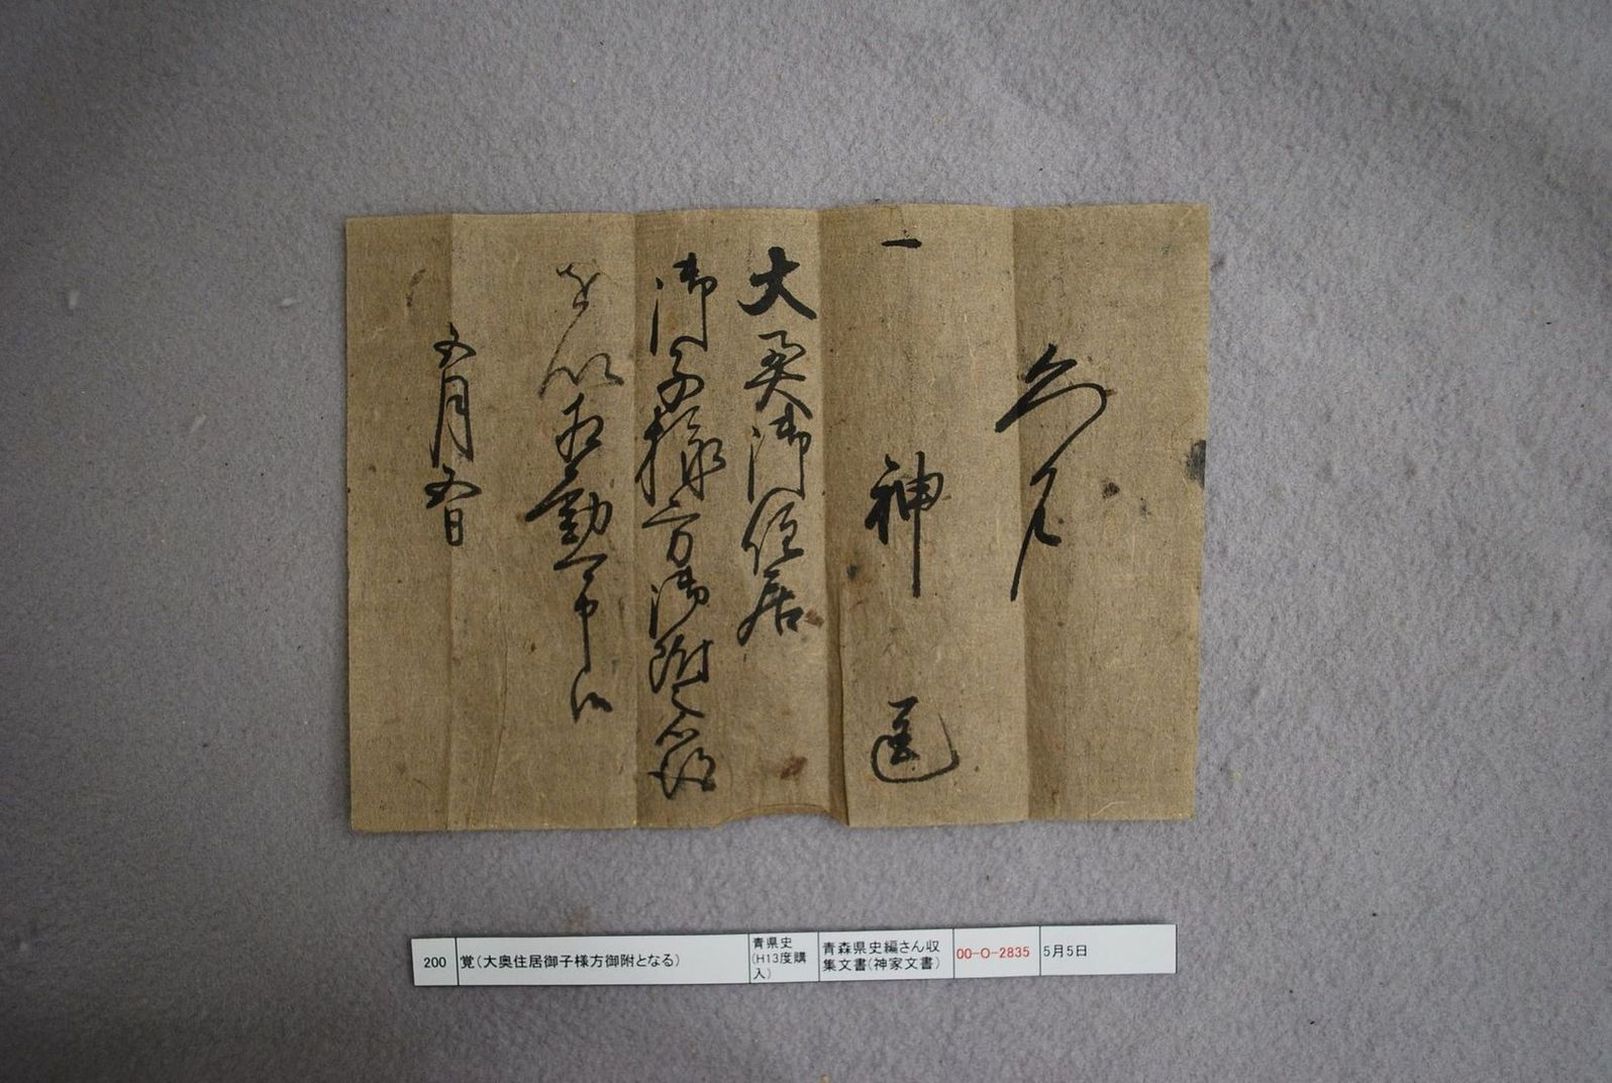 覚
一 神 
大奥御住居
御子様方御附之心得
を以相勤可申候
五月五日
200
覚(大奥住居御子様方御附となる)
青県史
(H13度購
入)
青森県史編さん収
集文書(神家文書)
00-O-2835
5月5日